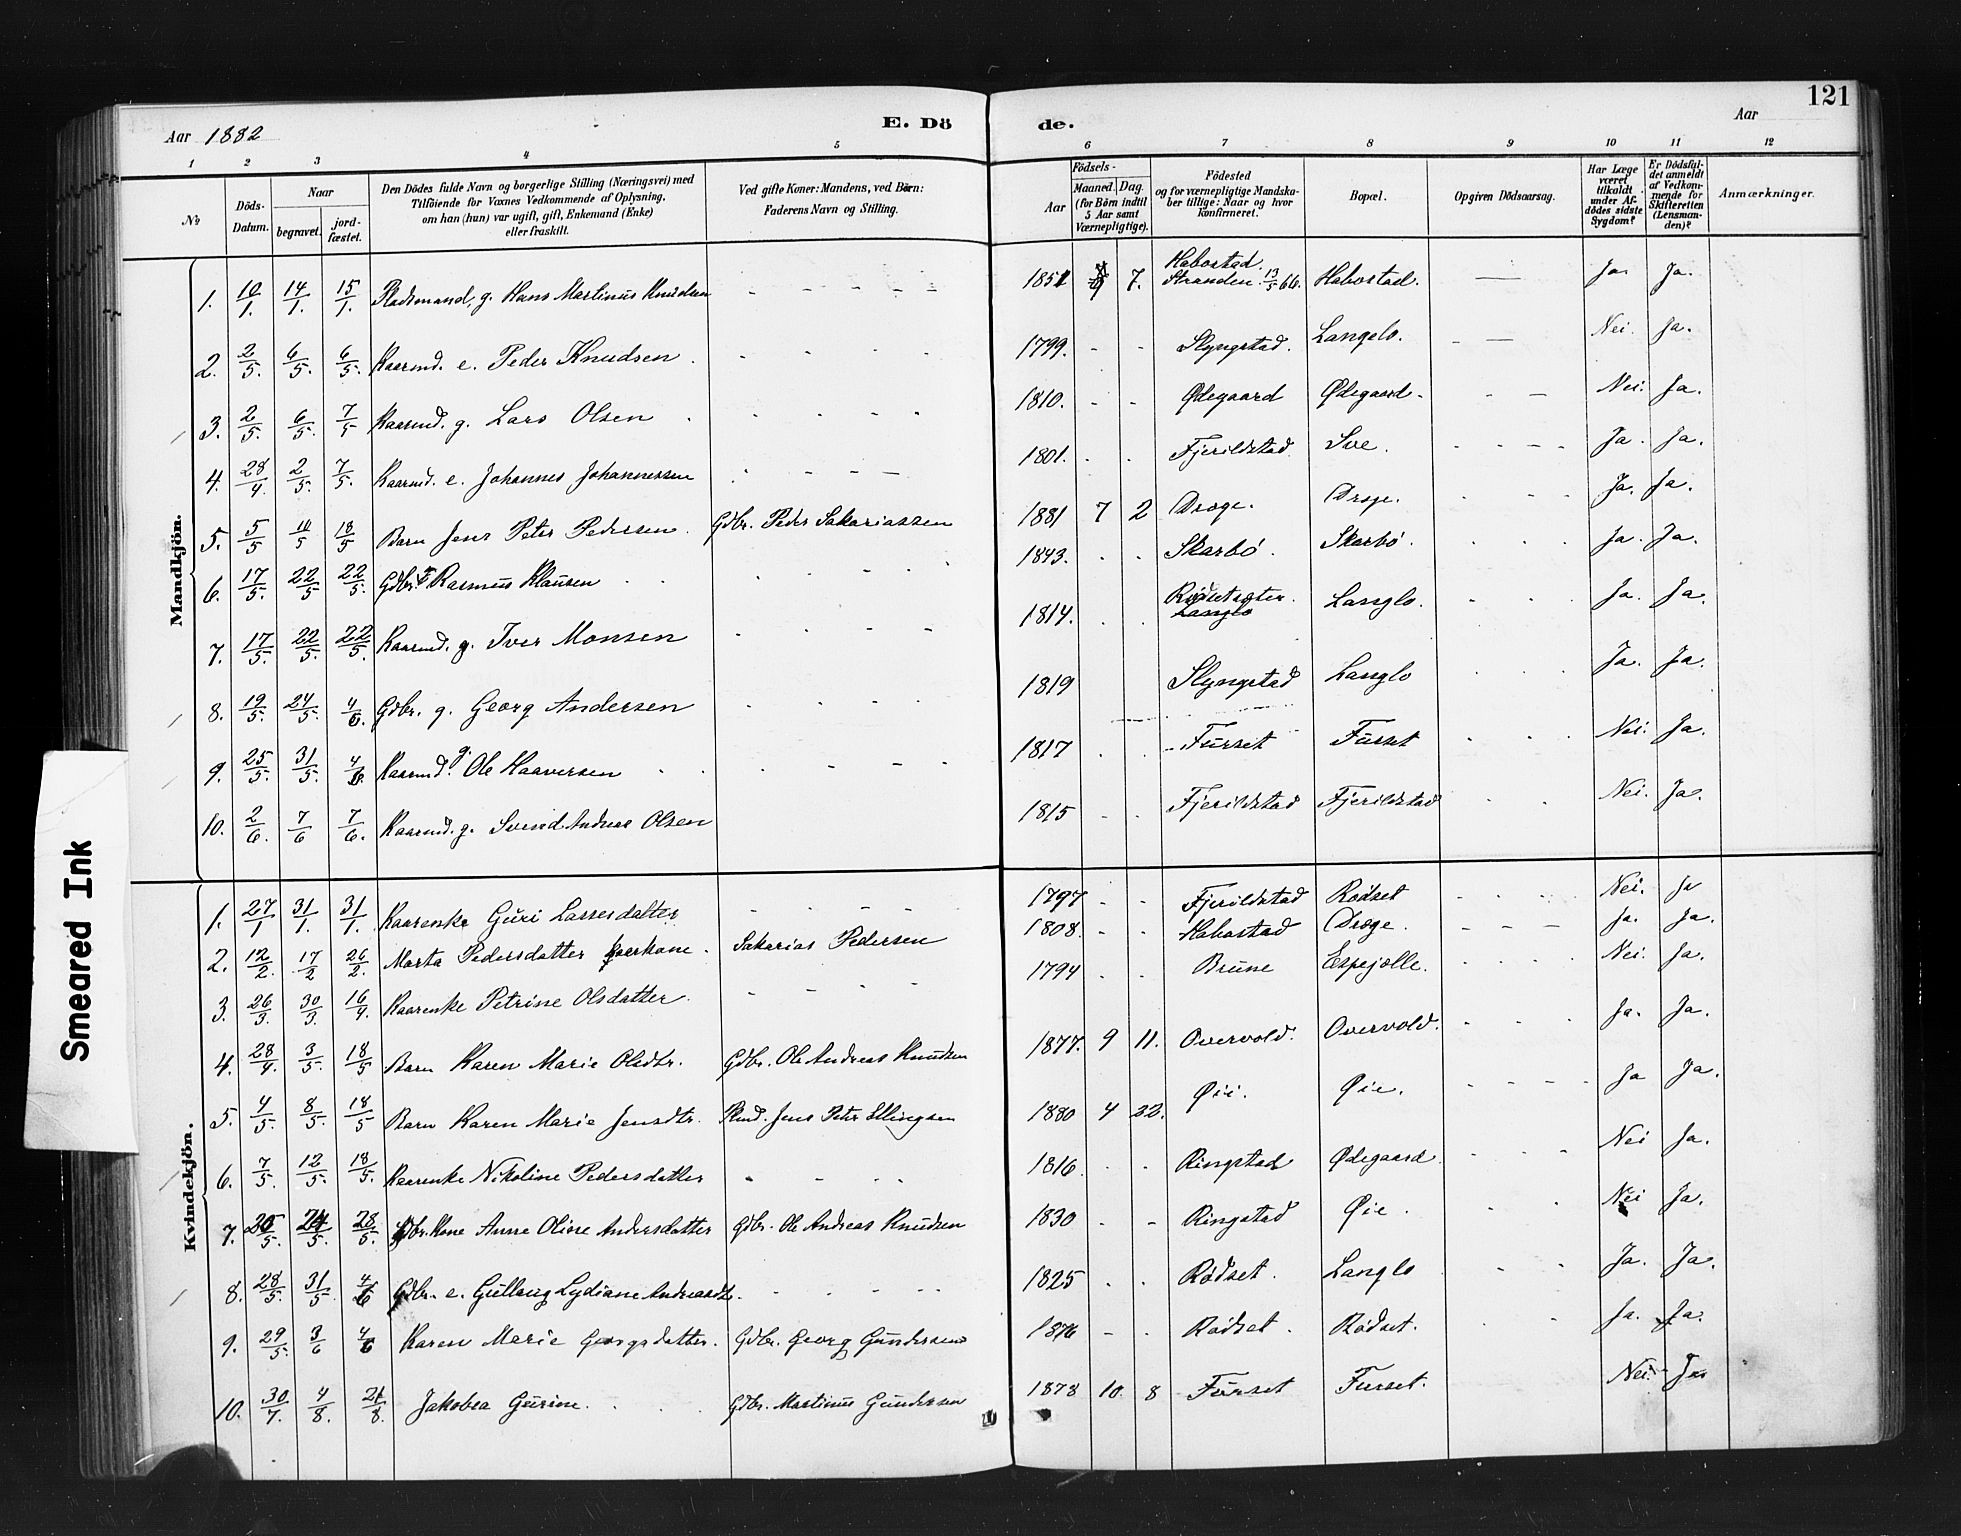 121
Aar 1882
E. Dö de.
Aar
1 2 3 4 5 6 7 8 9 10 11 12
No
Döds-Datum.
Naar
begravet.
jordfæstet.
Den Dödes fulde Navn og borgerlige Stilling (Næringsvei) med Tilföiende for Voxnes Vedkommende af Oplysning, om han (hun) var ugift, gift, Enkemand (Enke) eller fraskilt.
Ved gifte Koner: Mandens, ved Børn: Faderens Navn og Stilling.
Födsels-
Aar
Maaned. Dag.
(for Börn indtil 5 Aar samt Værnepligtige).
Födested og for værnepligtige Mandskaber tillige: Naar og hvor konfirmeret.
Bopæl.
Opgiven Dödsaarsag.
Har Læge været tilkaldt under Afdödes sidste Sygdom?
Er Dödsfaldet anmeldt af Vedkommende for Skifteretten (Lensmanden)?
Anmærkninger.
Mandkjön.
1. 10/1. 14/1. 15/1. Pladsmand, g. Hans Martinus Knudsen - - - - - 1851 7. Habostad. Stranden 13/5 66. Habostad. — Ja. Ja.
2. 2/5. 6/5. 6/5. Kaarmd. e. Peder Knudsen. - - - - 1799. - - Slyngstad. Langelo. - — Nei. Ja.
3. 2/5. 6/5. 7/5 Kaarmd. g. Lars Olsen - - - - 1810. - - Ødegaard Ødegaard. - - Nei. Ja.
4. 28/4. 2/5. 7/5. Kaarmd. e. Johannes Johannessen - - - - 1801. - - Fjerildstad Sve. - - - - Ja. Ja.
5. 5/5 10/5 18/5 Barn Jens Peter Pedersen. Gdbr. Peder Sakariassen 1881 7 2 Drøge. Drøge. - - - Ja. Ja.
6. 17/5. 22/5 22/5. Gdbr. Rasmus Klausen - - - - 1843. - - Skarbø. Skarbø. - - - Ja. Ja.
7. 17/5. 22/5. 22/5. Kaarmd. g. Iver Monsen - - - - 1814. - - Rødsetsæter. Langlo Langlo. - - - Ja. Ja.
8. 19/5. 24/5. 4/6. Gdbr. g. Georg Andersen - - - - 1819 Slyngstad Langlo - - - Ja. Ja.
9. 25/5. 31/5. 4/6. Kaarmd. g. Ole Haaversen - - - - 1817 - - Furset Furset - - - Nei. Ja.
10. 2/6. 7/6 7/6. Kaarmd. g. Svend Andreas Olsen 1815 - - Fjerildstad Fjerildstad - - Nei. Ja.
Kvindekjön.
1. 27/1 31/1. 31/1. Kaarenke Guri Lassesdatter - - - - 1797 - - Fjerildstad Rødset - - - - Nei. Ja
2. 12/2. 17/2 26/2. Marta Pedersdatter kaarkone. Sakarias Pedersen 1808. - - Habostad Drøge. - - - - Ja. Ja.
3. 26/3. 30/3. 16/4. Kaarenke Petrine Olsdatter. - - - - 1794 - - Brune Espejølle. - - - - Nei. Ja.
4. 28/4. 3/5. 18/5 Barn Karen Marie Olsdtr. Gdbr. Ole Andreas Knudsen 1877. 9 11. Overvold. Overvold. - - - Ja. Ja.
5. 4/5. 8/5. 18/5 Barn Karen Marie Jensdtr. Plmd. Jens Peter Ellingsen 1880 4 22. Øie. Øie. - - - - Ja Ja.
6. 7/5. 12/5. 18/5. Kaarenke Nikoline Pedersdatter - - - - 1816 - - Ringstad Ødegaard. - - - Nei Ja.
7. 20/5. 24/5. 28/5. Gdbr. Kone Anne Oline Andersdatter Gdbr. Ole Andreas Knudsen 1830 - - Ringstad Øie. - - Nei Ja.
8. 28/5. 31/5 4/6 Gdbr. e. Gullaug Lydiane Andreasdtr. - - - - 1825 - - Rødset. Langlo - - Ja. Ja.
9. 29/5. 3/6 4/6 Karen Marie Georgsdatter. Gdbr. Georg Gundersen 1876 - - Rødset. Rødset. - - Ja. Ja.
10. 30/7. 4/8. 21/8. Jakobea Gurine. Gdbr. Martinus Gundersen 1878 10. 8 Furset Furset. Nei. Ja
Smeared Ink